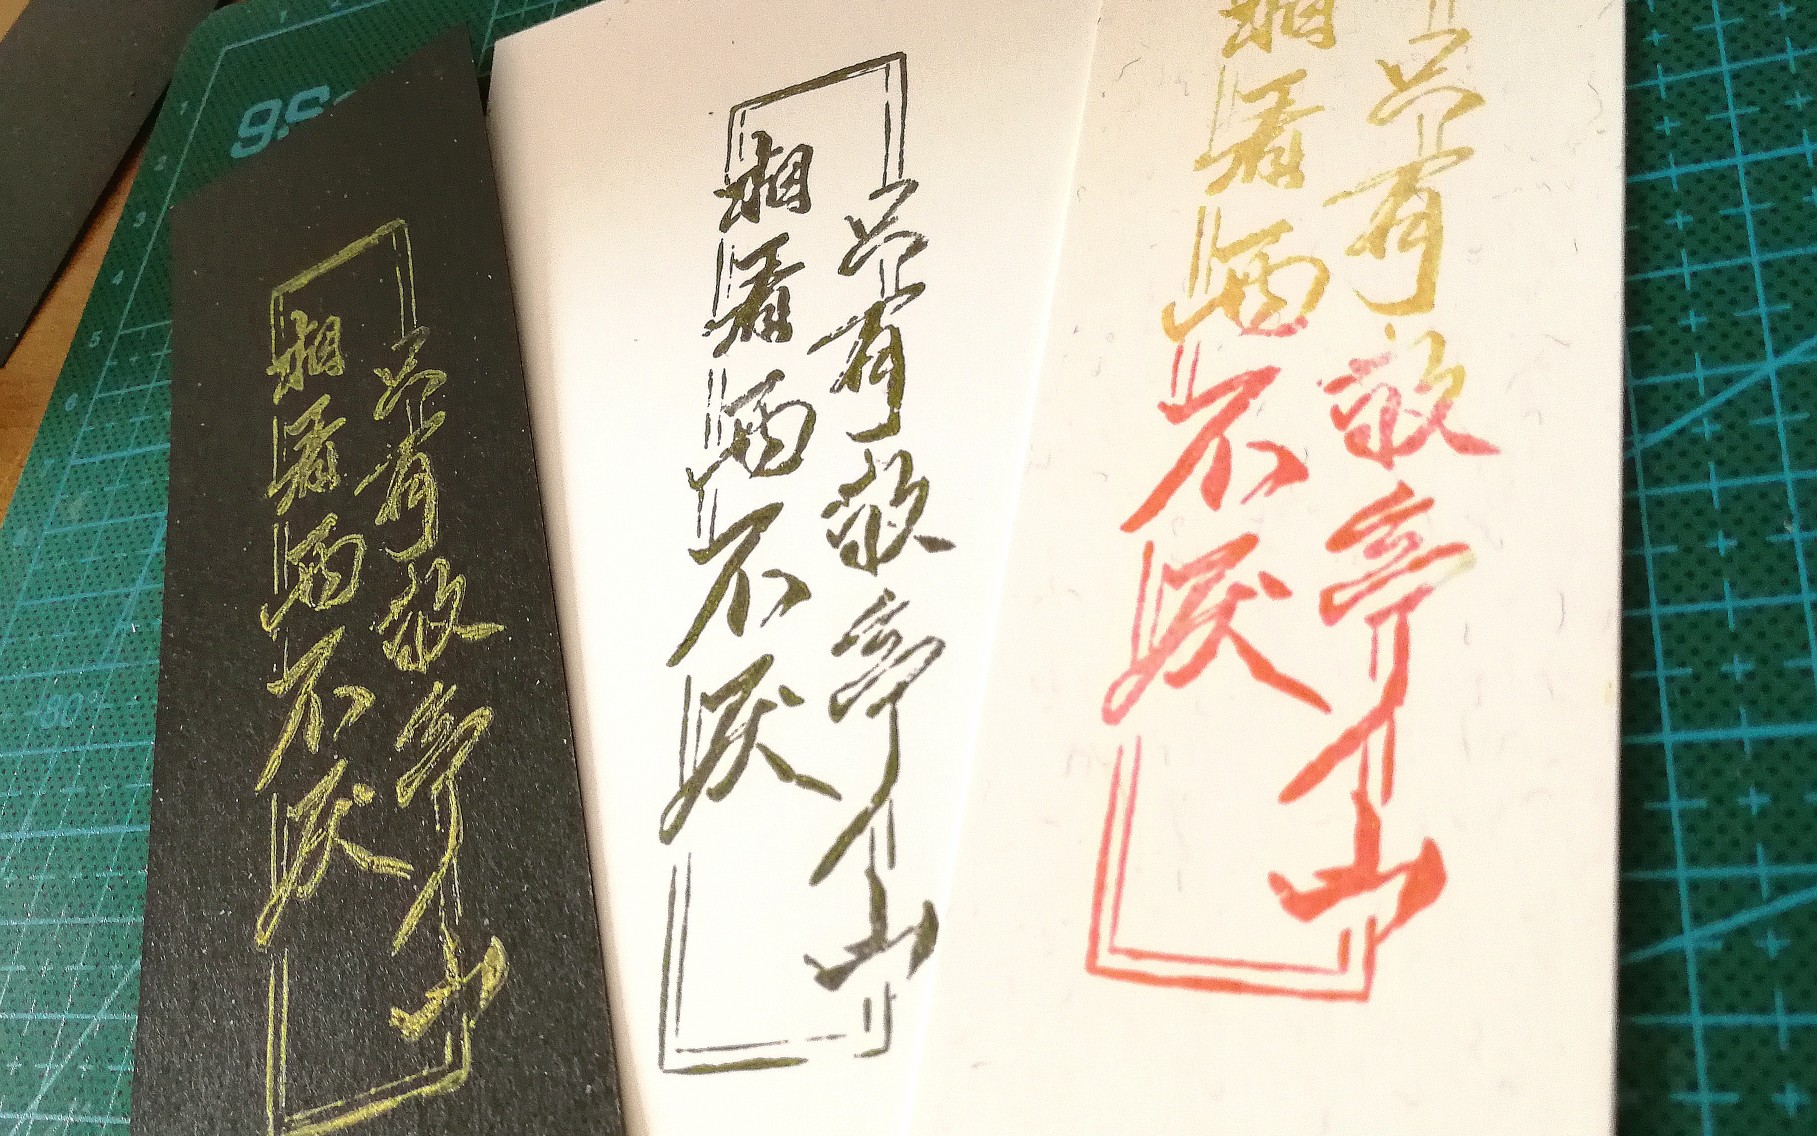 相看两不厌
只有敬亭山
相看两不厌
只有敬亭山
相看两不厌
只有敬亭山